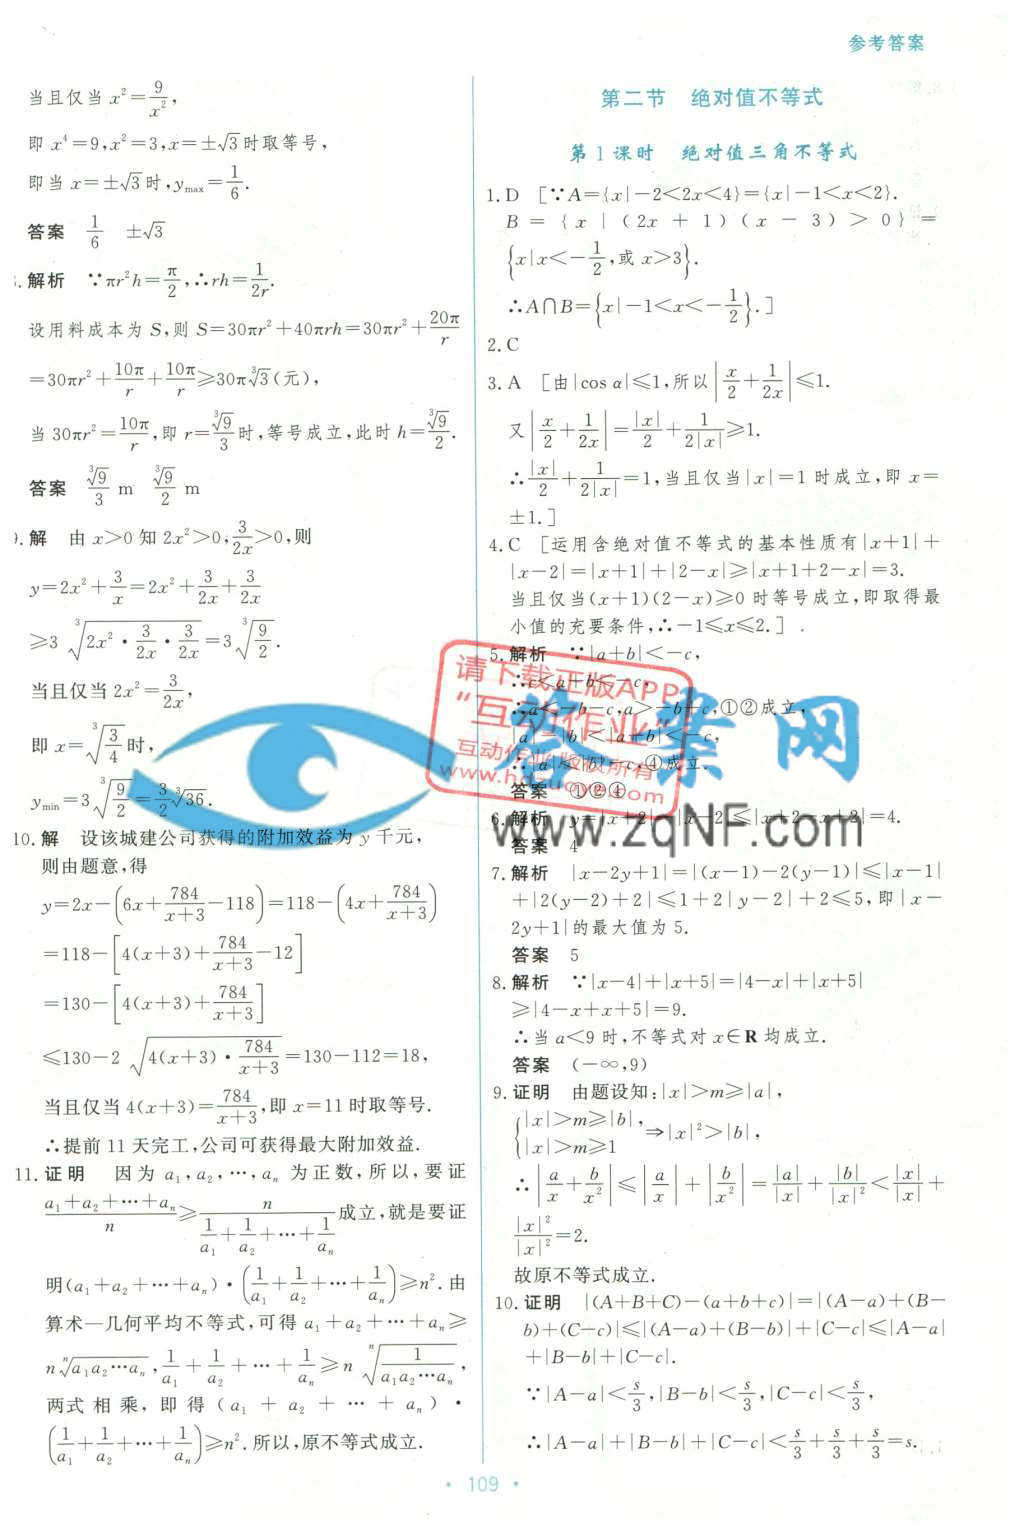 参考答案
当且仅当 x²=9/x²,
即 x⁴=9,x²=3,x=±√3时取等号,
即当 x=±√3时,y_max=1/6.
答案 1/6 ±√3
解析 ∵πr²h=π/2,∴rh=1/(2r).
设用料成本为 S,则 S=30πr²+40πrh=30πr²+20π/r
=30πr²+10π/r+10π/r≥30π∛3(元),
当 30πr²=10π/r,即 r=∛9/3时,等号成立,此时 h=∛9/2.
答案 ∛9/3 m ∛9/2 m
9.解 由 x>0 知 2x²>0,3/(2x)>0,则
y=2x²+3/x=2x²+3/(2x)+3/(2x)
≥3∛(2x²·3/(2x)·3/(2x))=3∛(9/2).
当且仅当 2x²=3/(2x),
即 x=∛(3/4)时,
y_min=3∛(9/2)=3/2∛36.
10.解 设该城建公司获得的附加效益为 y 千元,
则由题意,得
y=2x-(6x+784/(x+3)-118)=118-(4x+784/(x+3))
=118-[4(x+3)+784/(x+3)-12]
=130-[4(x+3)+784/(x+3)]
≤130-2√(4(x+3)·784/(x+3))=130-112=18,
当且仅当 4(x+3)=784/(x+3),即 x=11 时取等号.
∴提前 11 天完工,公司可获得最大附加效益.
11.证明 因为 a₁,a₂,…,aₙ 为正数,所以,要证
(a₁+a₂+…+aₙ)/n≥n/(1/a₁+1/a₂+…+1/aₙ)成立,就是要证
明(a₁+a₂+…+aₙ)·(1/a₁+1/a₂+…+1/aₙ)≥n².由
算术—几何平均不等式,可得 a₁+a₂+…+aₙ≥
n ⁿ√(a₁a₂…aₙ),1/a₁+1/a₂+…+1/aₙ≥n ⁿ√(1/(a₁a₂…aₙ)),
两式相乘,即得(a₁+a₂+…+aₙ)·
(1/a₁+1/a₂+…+1/aₙ)≥n².所以,原不等式成立.
第二节 绝对值不等式
第1课时 绝对值三角不等式
1.D [∵A={x|-2<2x<4}={x|-1<x<2}.
B={x|(2x+1)(x-3)>0}=
{x|x<-1/2,或 x>3}.
∴A∩B={x|-1<x<-1/2}.]
2.C
3.A [由|cos α|≤1,所以|x/2+1/(2x)|≤1.
又|x/2+1/(2x)|=|x|/2+1/(2|x|)≥1.
∴|x|/2+1/(2|x|)=1,当且仅当|x|=1 时成立,即 x=
±1.]
4.C [运用含绝对值不等式的基本性质有|x+1|+
|x-2|=|x+1|+|2-x|≥|x+1+2-x|=3.
当且仅当(x+1)(2-x)≥0 时等号成立,即取得最
小值的充要条件,∴-1≤x≤2.].
5.解析 ∵|a+b|<-c,
∴c<a+b<-c,
∴a<-b-c,a>-b+c,①②成立,
|a|-|b|<|a+b|<-c,
∴|a|<|b|-c,④成立.
答案 ①②④
6.解析 y=|x+2|-|x-2|≤|x+2-x+2|=4.
答案 4
7.解析 |x-2y+1|=|(x-1)-2(y-1)|≤|x-1|
+|2(y-2)+2|≤1+2|y-2|+2≤5,即|x-
2y+1|的最大值为 5.
答案 5
8.解析 ∵|x-4|+|x+5|=|4-x|+|x+5|
≥|4-x+x+5|=9.
∴当 a<9 时,不等式对 x∈R 均成立.
答案 (-∞,9)
9.证明 由题设知:|x|>m≥|a|,
{|x|>m≥|b|, |x|>m≥1 ⇒|x|²>|b|,
∴|a/x+b/x²|≤|a/x|+|b/x²|=|a|/|x|+|b|/|x|²<|x|/|x|+
|x|²/|x|²=2.
故原不等式成立.
10.证明 |(A+B+C)-(a+b+c)|=|(A-a)+(B-
b)+(C-c)|≤|(A-a)+(B-b)|+|C-c|≤|A-a|
+|B-b|+|C-c|.
∵|A-a|<s/3,|B-b|<s/3,|C-c|<s/3,
∴|A-a|+|B-b|+|C-c|<s/3+s/3+s/3=s.
请下载正版APP
“互动作业”
互动作业版权所有
www.hdzuoye.com
答案网
www.zqNF.com
· 109 ·